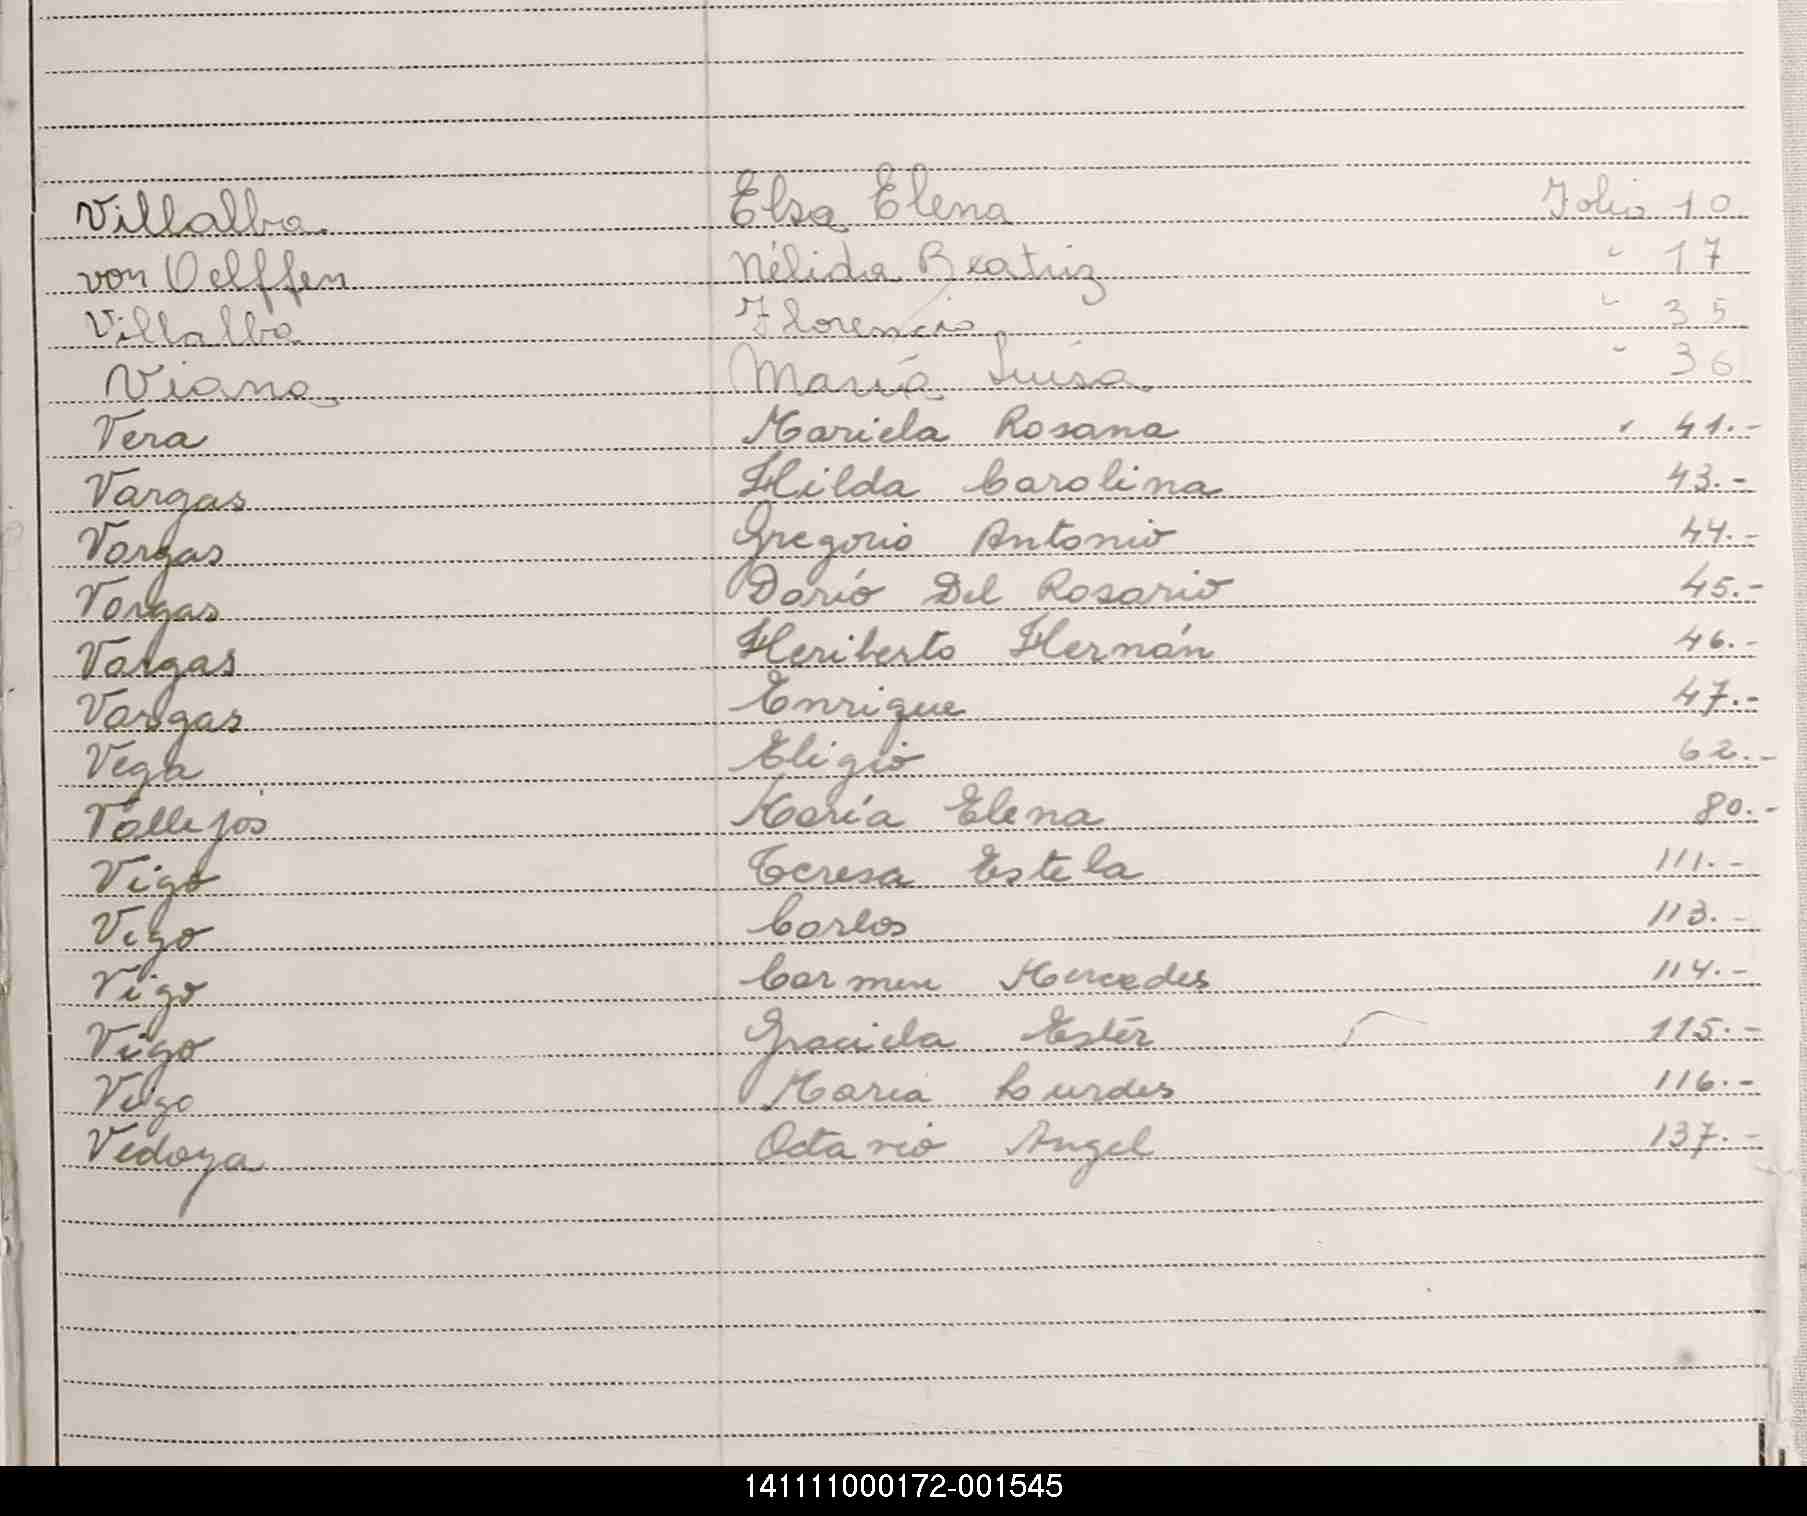 Villalba Elsa Elena Folio 10
von Oelffen Nélida Beatriz " 17
Villalba Florencio " 35
Viana María Luisa " 36
Vera Mariela Rosana " 41.-
Vargas Hilda Carolina 43.-
Vargas Gregorio Antonio 44.-
Vargas Darió Del Rosario 45.-
Vargas Heriberto Hernán 46.-
Vargas Enrique 47.-
Vega Eligio 62.-
Vallejos María Elena 80.-
Vigo Teresa Estela 111.-
Vigo Carlos 113.-
Vigo Carmen Mercedes 114.-
Vigo Graciela Estér 115.-
Vigo María Lurdes 116.-
Vedoya Octavio Angel 137.-
141111000172-001545